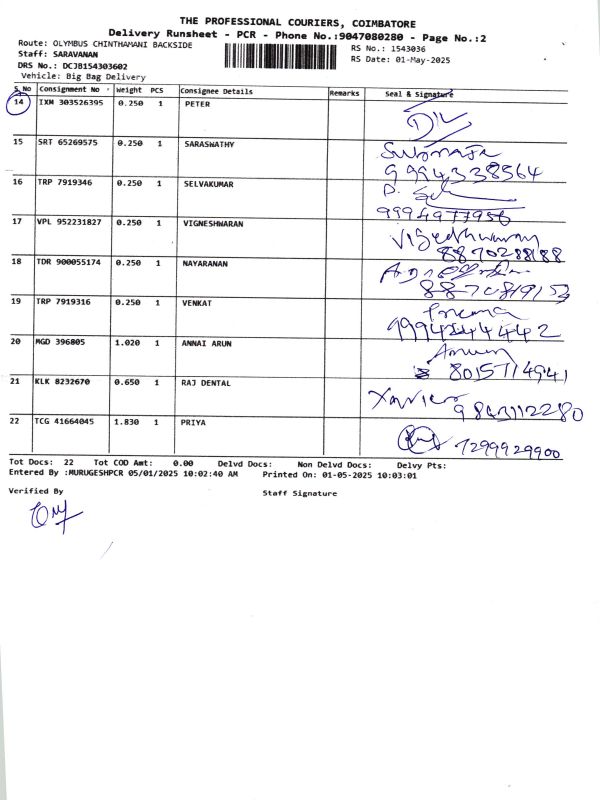 THE PROFESSIONAL COURIERS, COIMBATORE
Delivery Runsheet - PCR - Phone No.:9047080280 - Page No.:2
Route: OLYMBUS CHINTHAMANI BACKSIDE
RS No.: 1543036
Staff: SARAVANAN
RS Date: 01-May-2025
DRS No.: DCJB154303602
Vehicle: Big Bag Delivery
S.No Consignment No Weight PCS Consignee Details Remarks Seal & Signature
14 IXM 303526395 0.250 1 PETER
15 SRT 65269575 0.250 1 SARASWATHY
9994338564
16 TRP 7919346 0.250 1 SELVAKUMAR
9994977956
17 VPL 952231827 0.250 1 VIGNESHWARAN
8870288188
18 TDR 900055174 0.250 1 NAYARANAN
19 TRP 7919316 0.250 1 VENKAT
Prema
20 MGD 396805 1.020 1 ANNAI ARUN
8015714941
21 KLK 8232670 0.650 1 RAJ DENTAL
Xavier 9843112280
22 TCG 41664045 1.830 1 PRIYA
7299929900
Tot Docs: 22 Tot COD Amt: 0.00 Delvd Docs: Non Delvd Docs: Delvy Pts:
Entered By :MURUGESHPCR 05/01/2025 10:02:40 AM Printed On: 01-05-2025 10:03:01
Verified By
Staff Signature